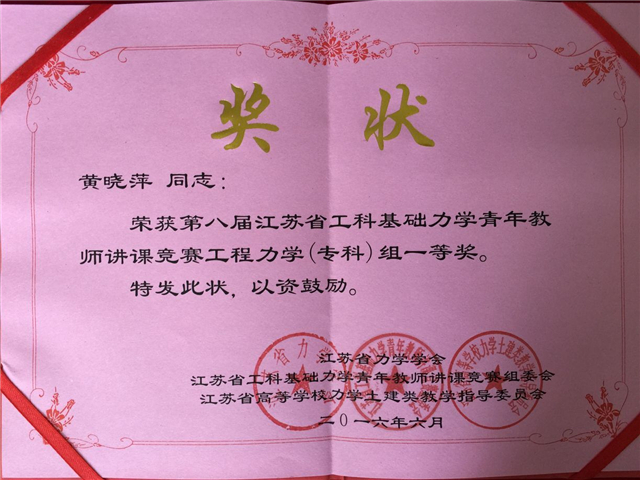 奖状
黄晓萍 同志：
荣获第八届江苏省工科基础力学青年教
师讲课竞赛工程力学(专科)组一等奖。
特发此状，以资鼓励。
江苏省力学学会
江苏省工科基础力学青年教师讲课竞赛组委会
江苏省高等学校力学土建类教学指导委员会
二〇一六年六月